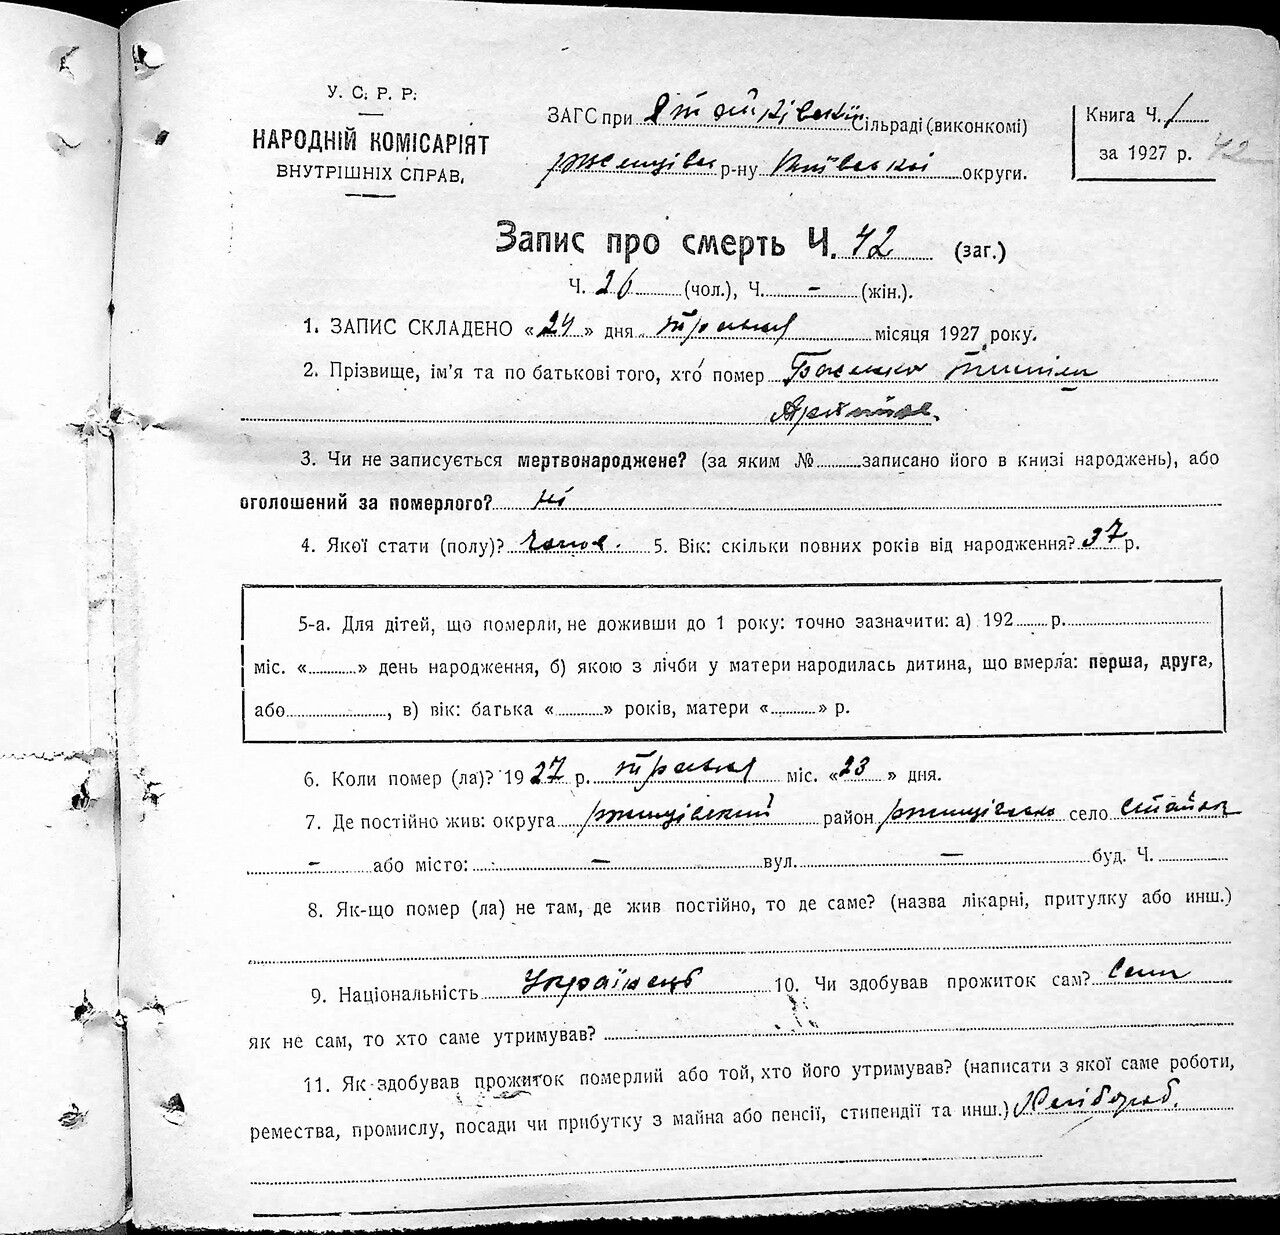 У. С. Р. Р.
НАРОДНІЙ КОМІСАРІЯТ
ВНУТРІШНІХ СПРАВ,
ЗАГС при Стайківській Сільраді (виконкомі)
р-ну Київської округи.
Книга Ч. 1
за 1927 р. 42
Запис про смерть Ч. 42 (заг.)
Ч. 26 (чол.), Ч. - (жін.).
1. ЗАПИС СКЛАДЕНО «24» дня травня місяця 1927 року.
2. Прізвище, ім'я та по батькові того, хто помер
3. Чи не записується мертвонароджене? (за яким № записано його в книзі народжень), або
оголошений за померлого? ні
4. Якої стати (полу)? 5. Вік: скільки повних років від народження? 37 р.
5-а. Для дітей, що померли, не доживши до 1 року: точно зазначити: а) 192 р.
міс. « » день народження, б) якою з лічби у матери народилась дитина, що вмерла: перша, друга,
або , в) вік: батька « » років, матери « » р.
6. Коли помер (ла)? 1927 р. травня міс. «23» дня.
7. Де постійно жив: округа район село Стайки
- або місто: - вул. - буд. Ч.
8. Як-що помер (ла) не там, де жив постійно, то де саме? (назва лікарні, притулку або инш.)
9. Національність Українець 10. Чи здобував прожиток сам? Сам
як не сам, то хто саме утримував?
11. Як здобував прожиток померлий або той, хто його утримував? (написати з якої саме роботи,
ремества, промислу, посади чи прибутку з майна або пенсії, стипендії та инш.) Хлібороб.